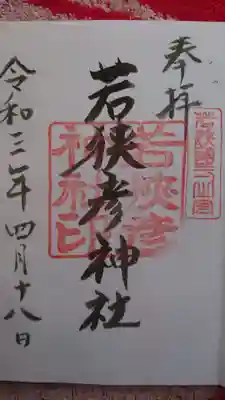 奉拝
若狭國一之宮
若狭彦神社
若狹彦神社印
令和三年四月十八日